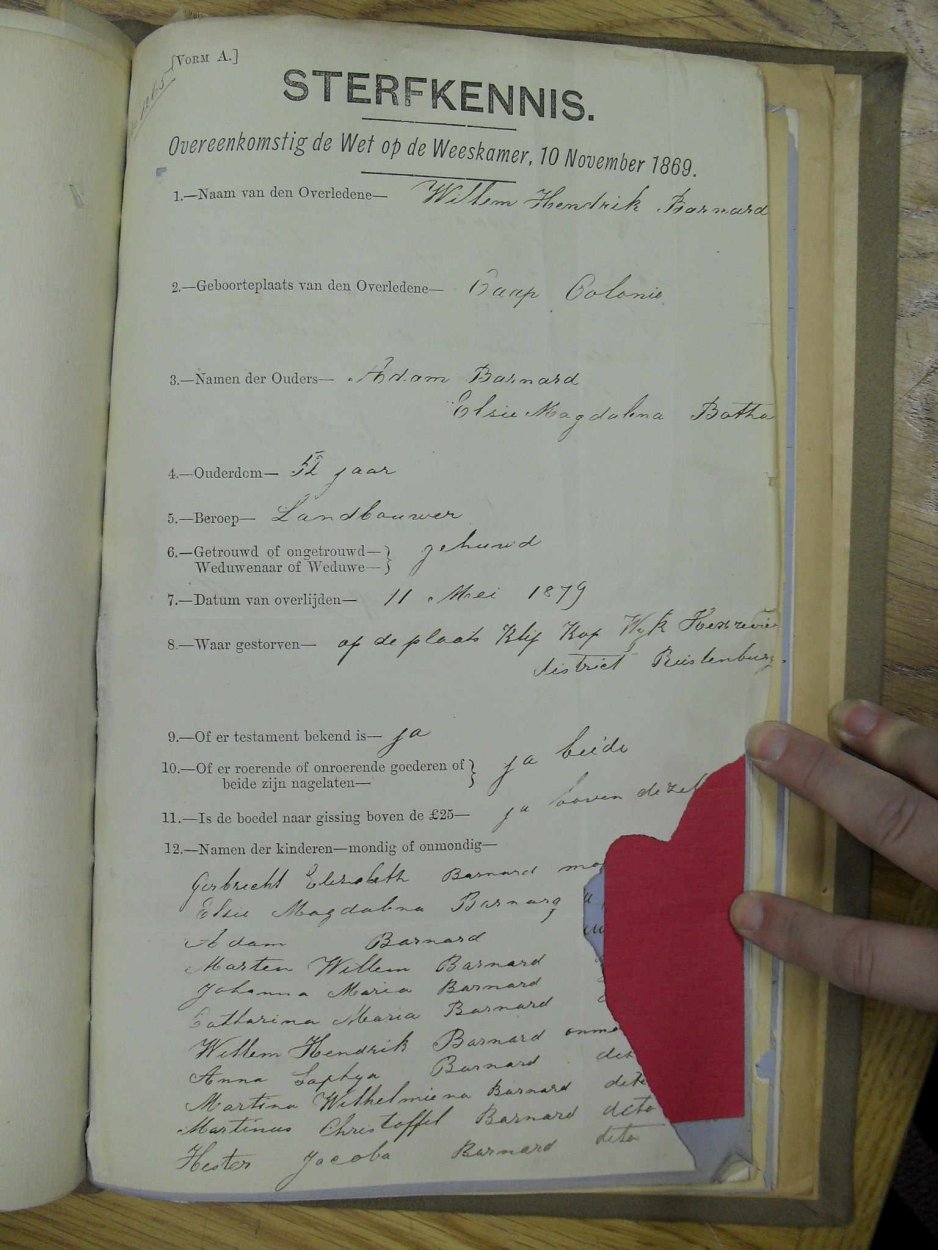 [VORM A.]
STERFKENNIS.
Overeenkomstig de Wet op de Weeskamer, 10 November 1869.
1.—Naam van den Overledene— Willem Hendrik Barnard
2.—Geboorteplaats van den Overledene— Caap Colonie
3.—Namen der Ouders— Adam Barnard
Elsie Magdalena Botha
4.—Ouderdom— jaar
5.—Beroep— Landbouwer
6.—Getrouwd of ongetrouwd—} gehuwd
Weduwenaar of Weduwe—}
7.—Datum van overlijden— 11 Mei 1879
8.—Waar gestorven— op de plaats Klip Kop Wyk Hexrevier
district Rustenburg.
9.—Of er testament bekend is— ja
10.—Of er roerende of onroerende goederen of } ja beide
beide zijn nagelaten—
11.—Is de boedel naar gissing boven de £25— ja boven
12.—Namen der kinderen—mondig of onmondig—
Gesbrecht Elizabeth Barnard
Elsie Magdalena Barnard
Adam Barnard
Marten Willem Barnard
Johanna Maria Barnard
Catharina Maria Barnard
Willem Hendrik Barnard
Anna Sophya Barnard
Martina Wilhelmiena Barnard
Martinus Christoffel Barnard deto
Hester Jacoba Barnard deto